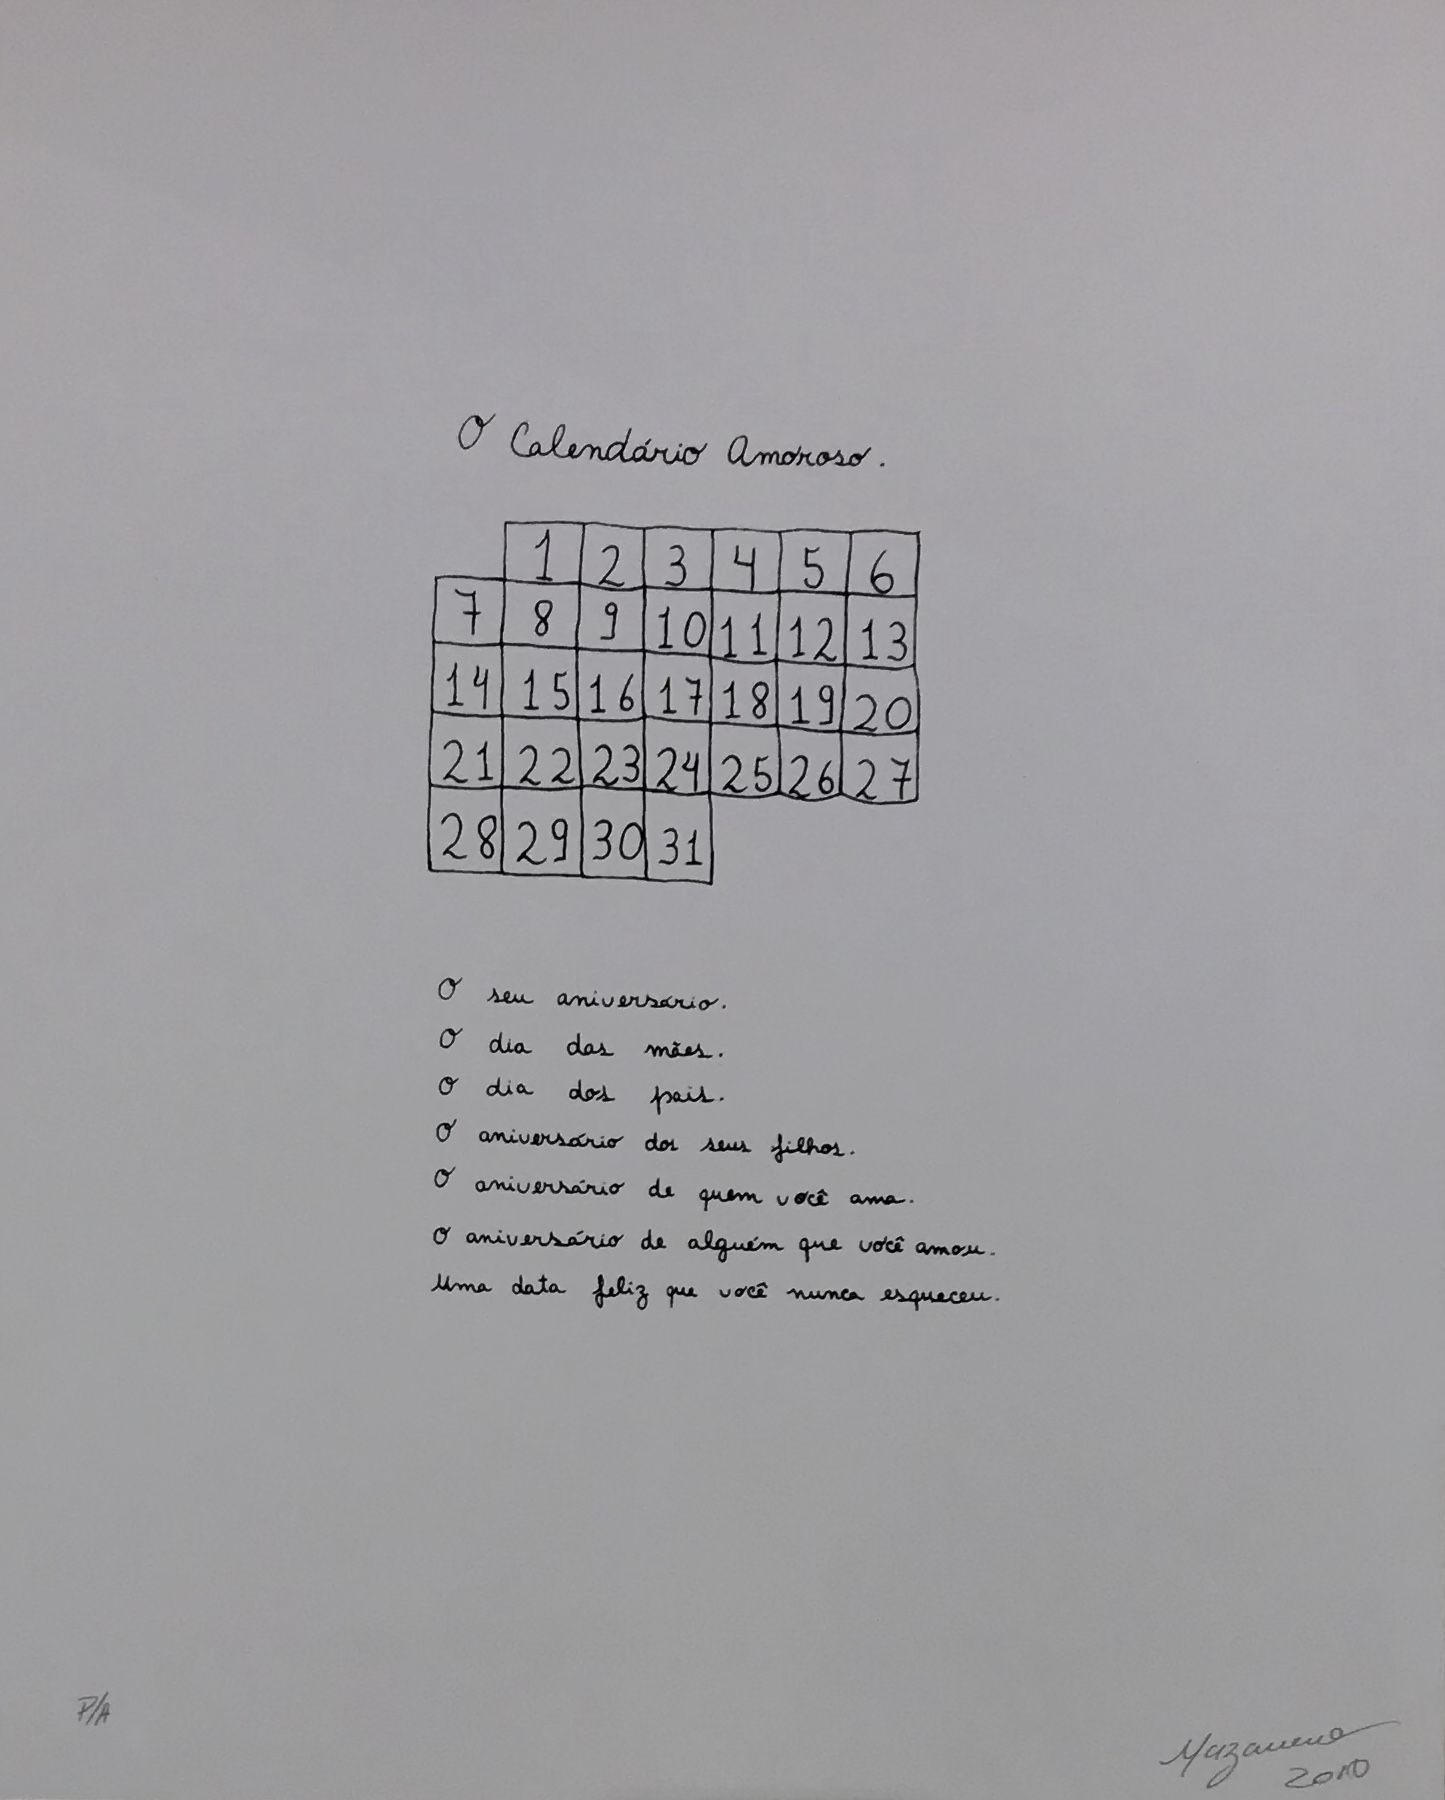 O Calendário Amoroso.
1 2 3 4 5 6
7 8 9 10 11 12 13
14 15 16 17 18 19 20
21 22 23 24 25 26 27
28 29 30 31
O seu aniversário.
O dia das mães.
O dia dos pais.
O aniversário dos seus filhos.
O aniversário de quem você ama.
O aniversário de alguém que você amou.
Uma data feliz que você nunca esqueceu.
P/A
2010